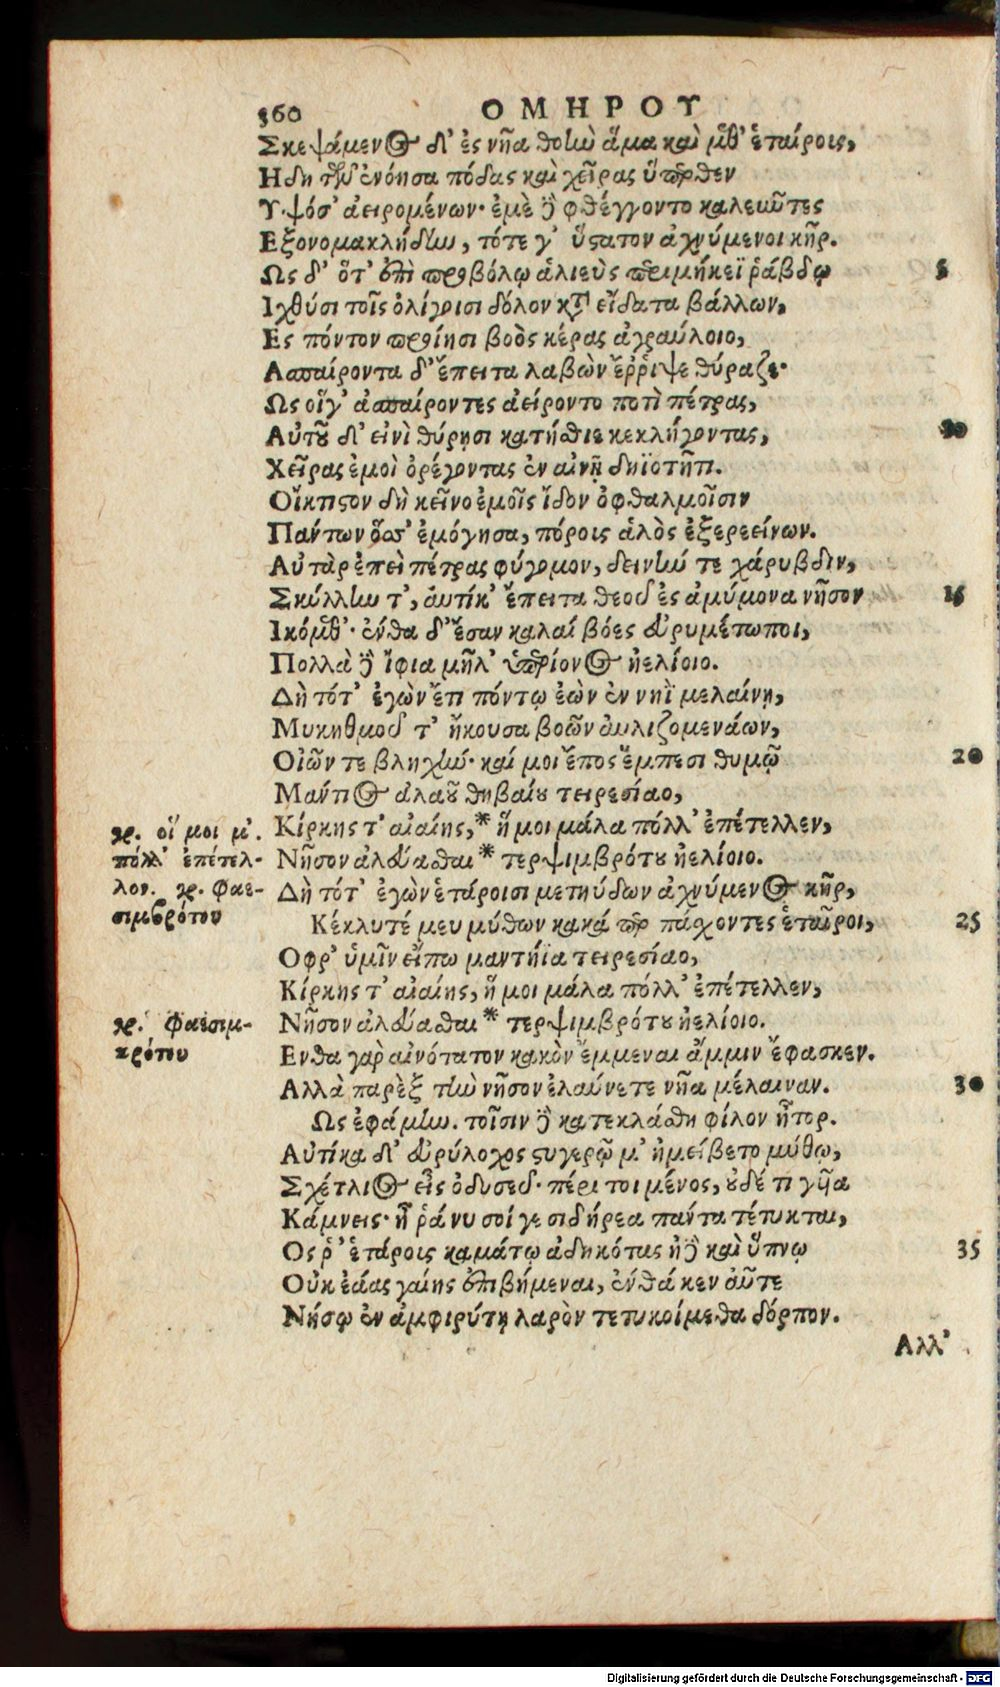 360 ΟΜΗΡΟΥ
Σκεψάμενος δ' ἐς νῆα θοὴν ἅμα καὶ μεθ' ἑταίροις,
Ηδη τῶν ἐνόησα πόδας καὶ χεῖρας ὕπερθεν
Υψόσ' ἀειρομένων· ἐμὲ δὲ φθέγγοντο καλεῦντες
Εξονομακλήδην, τότε γ' ὕστατον ἀχνύμενοι κῆρ.
Ως δ' ὅτ' ἐπὶ προβόλῳ ἁλιεὺς περιμήκεϊ ῥάβδῳ 5
Ιχθύσι τοῖς ὀλίγοισι δόλον κατὰ εἴδατα βάλλων,
Ες πόντον προίησι βοὸς κέρας ἀγραύλοιο,
Ασπαίροντα δ' ἔπειτα λαβὼν ἔῤῥιψε θύραζε·
Ως οἵγ' ἀσπαίροντες ἀείροντο ποτὶ πέτρας,
Αὐτοῦ δ' εἰνὶ θύρῃσι κατήσθιε κεκλήγοντας, 10
Χεῖρας ἐμοὶ ὀρέγοντας ἐν αἰνῇ δηϊοτῆτι.
Οἴκτιστον δὴ κεῖνο ἐμοῖς ἴδον ὀφθαλμοῖσιν
Πάντων ὅσσ' ἐμόγησα, πόροις ἁλὸς ἐξερεείνων.
Αὐτὰρ ἐπεὶ πέτρας φύγομον, δεινήν τε χάρυβδιν,
Σκύλλην τ', αὐτίκ' ἔπειτα θεοῦ ἐς ἀμύμονα νῆσον 15
Ικόμεθ'· ἔνθα δ' ἔσαν καλαί βόες εὐρυμέτωποι,
Πολλὰ δὲ ἴφια μῆλ' ὑπερίονος ἠελίοιο.
Δὴ τότ' ἐγὼν ἔτι πόντῳ ἐὼν ἐν νηῒ μελαίνῃ,
Μυκηθμοῦ τ' ἤκουσα βοῶν αὐλιζομενάων,
Οἰῶν τε βληχήν· καί μοι ἔπος ἔμπεσι θυμῷ 20
Μάντιος ἀλαοῦ θηβαίου τειρεσίαο,
Κίρκης τ' αἰαίης,* ἥ μοι μάλα πόλλ' ἐπέτελλεν,
Νῆσον ἀλεύασθαι * τερψιμβρότου ἠελίοιο.
Δὴ τότ' ἐγὼν ἑτάροισι μετηύδων ἀχνύμενος κῆρ,
Κέκλυτέ μευ μύθων κακά περ πάσχοντες ἑταῖροι, 25
Οφρ' ὑμῖν εἴπω μαντήϊα τειρεσίαο,
Κίρκης τ' αἰαίης, ἥ μοι μάλα πόλλ' ἐπέτελλεν,
Νῆσον ἀλεύασθαι * τερψιμβρότου ἠελίοιο.
Ενθα γὰρ αἰνότατον κακὸν ἔμμεναι ἄμμιν ἔφασκεν.
Αλλὰ παρὲξ τὴν νῆσον ἐλαύνετε νῆα μέλαιναν. 30
Ως ἐφάμην. τοῖσιν δὲ κατεκλάσθη φίλον ἦτορ.
Αὐτίκα δ' εὐρύλοχος στυγερῷ μ' ἠμείβετο μύθῳ,
Σχέτλιος εἶς ὀδυσεῦ· πέρι τοι μένος, οὐδέ τι γῦῖα
Κάμνεις· ἦ ῥά νυ σοί γε σιδήρεα πάντα τέτυκται,
Ος ῥ' ἑτάροις καμάτῳ ἀδηκότας ἠδὲ καὶ ὕπνῳ 35
Οὐκ ἐάας γαίης ἐπιβήμεναι, ἔνθά κεν αὖτε
Νήσῳ ἐν ἀμφιρύτῃ λαρὸν τετυκοίμεθα δόρπον.
Αλλ'
γρ. οἵ μοι μ'.
πόλλ' ἐπέτελ-
λον. γρ. φαε-
σιμβρότου
γρ. φαεσιμ-
βρότου
Digitalisierung gefördert durch die Deutsche Forschungsgemeinschaft - DFG